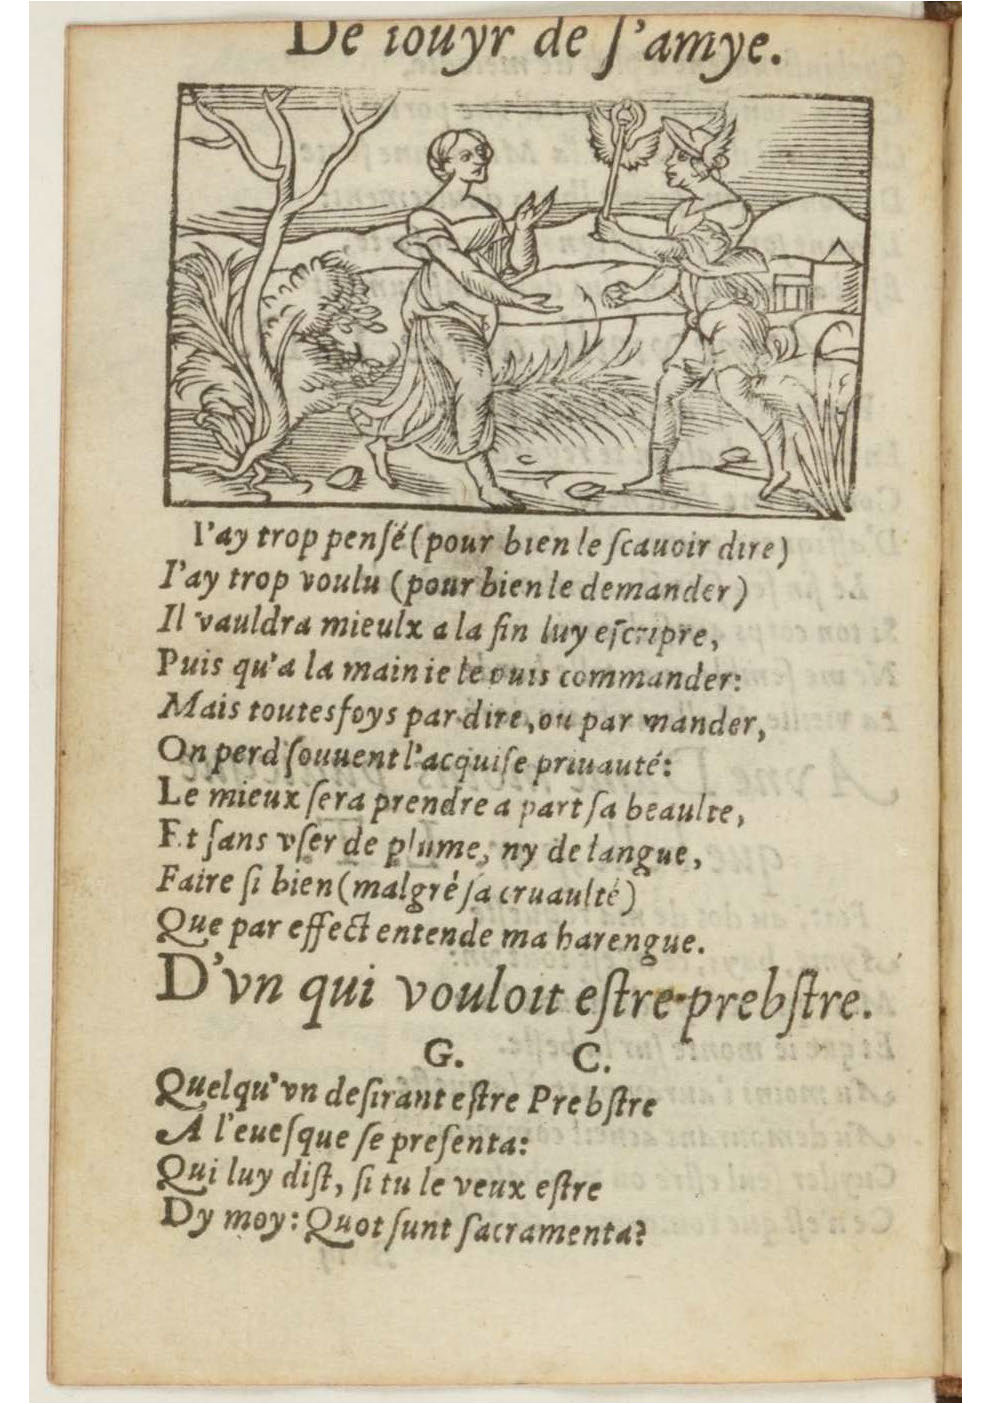 De iouyr de ſ'amye.
I'ay trop penſé (pour bien le ſcauoir dire)
I'ay trop voulu (pour bien le demander)
Il vauldra mieulx a la fin luy eſcripre,
Puis qu'a la main ie le puis commander:
Mais toutesfoys par dire, ou par mander,
On perd ſouuent l'acquiſe priuauté:
Le mieux ſera prendre a part ſa beaulte,
Et ſans vſer de plume, ny de langue,
Faire ſi bien (malgré ſa cruaulté)
Que par effect entende ma harengue.
D'vn qui vouloit eſtre prebſtre.
G. C.
Quelqu'vn deſirant eſtre Prebſtre
A l'eueſque ſe preſenta:
Qui luy diſt, ſi tu le veux eſtre
Dy moy: Quot ſunt ſacramenta?